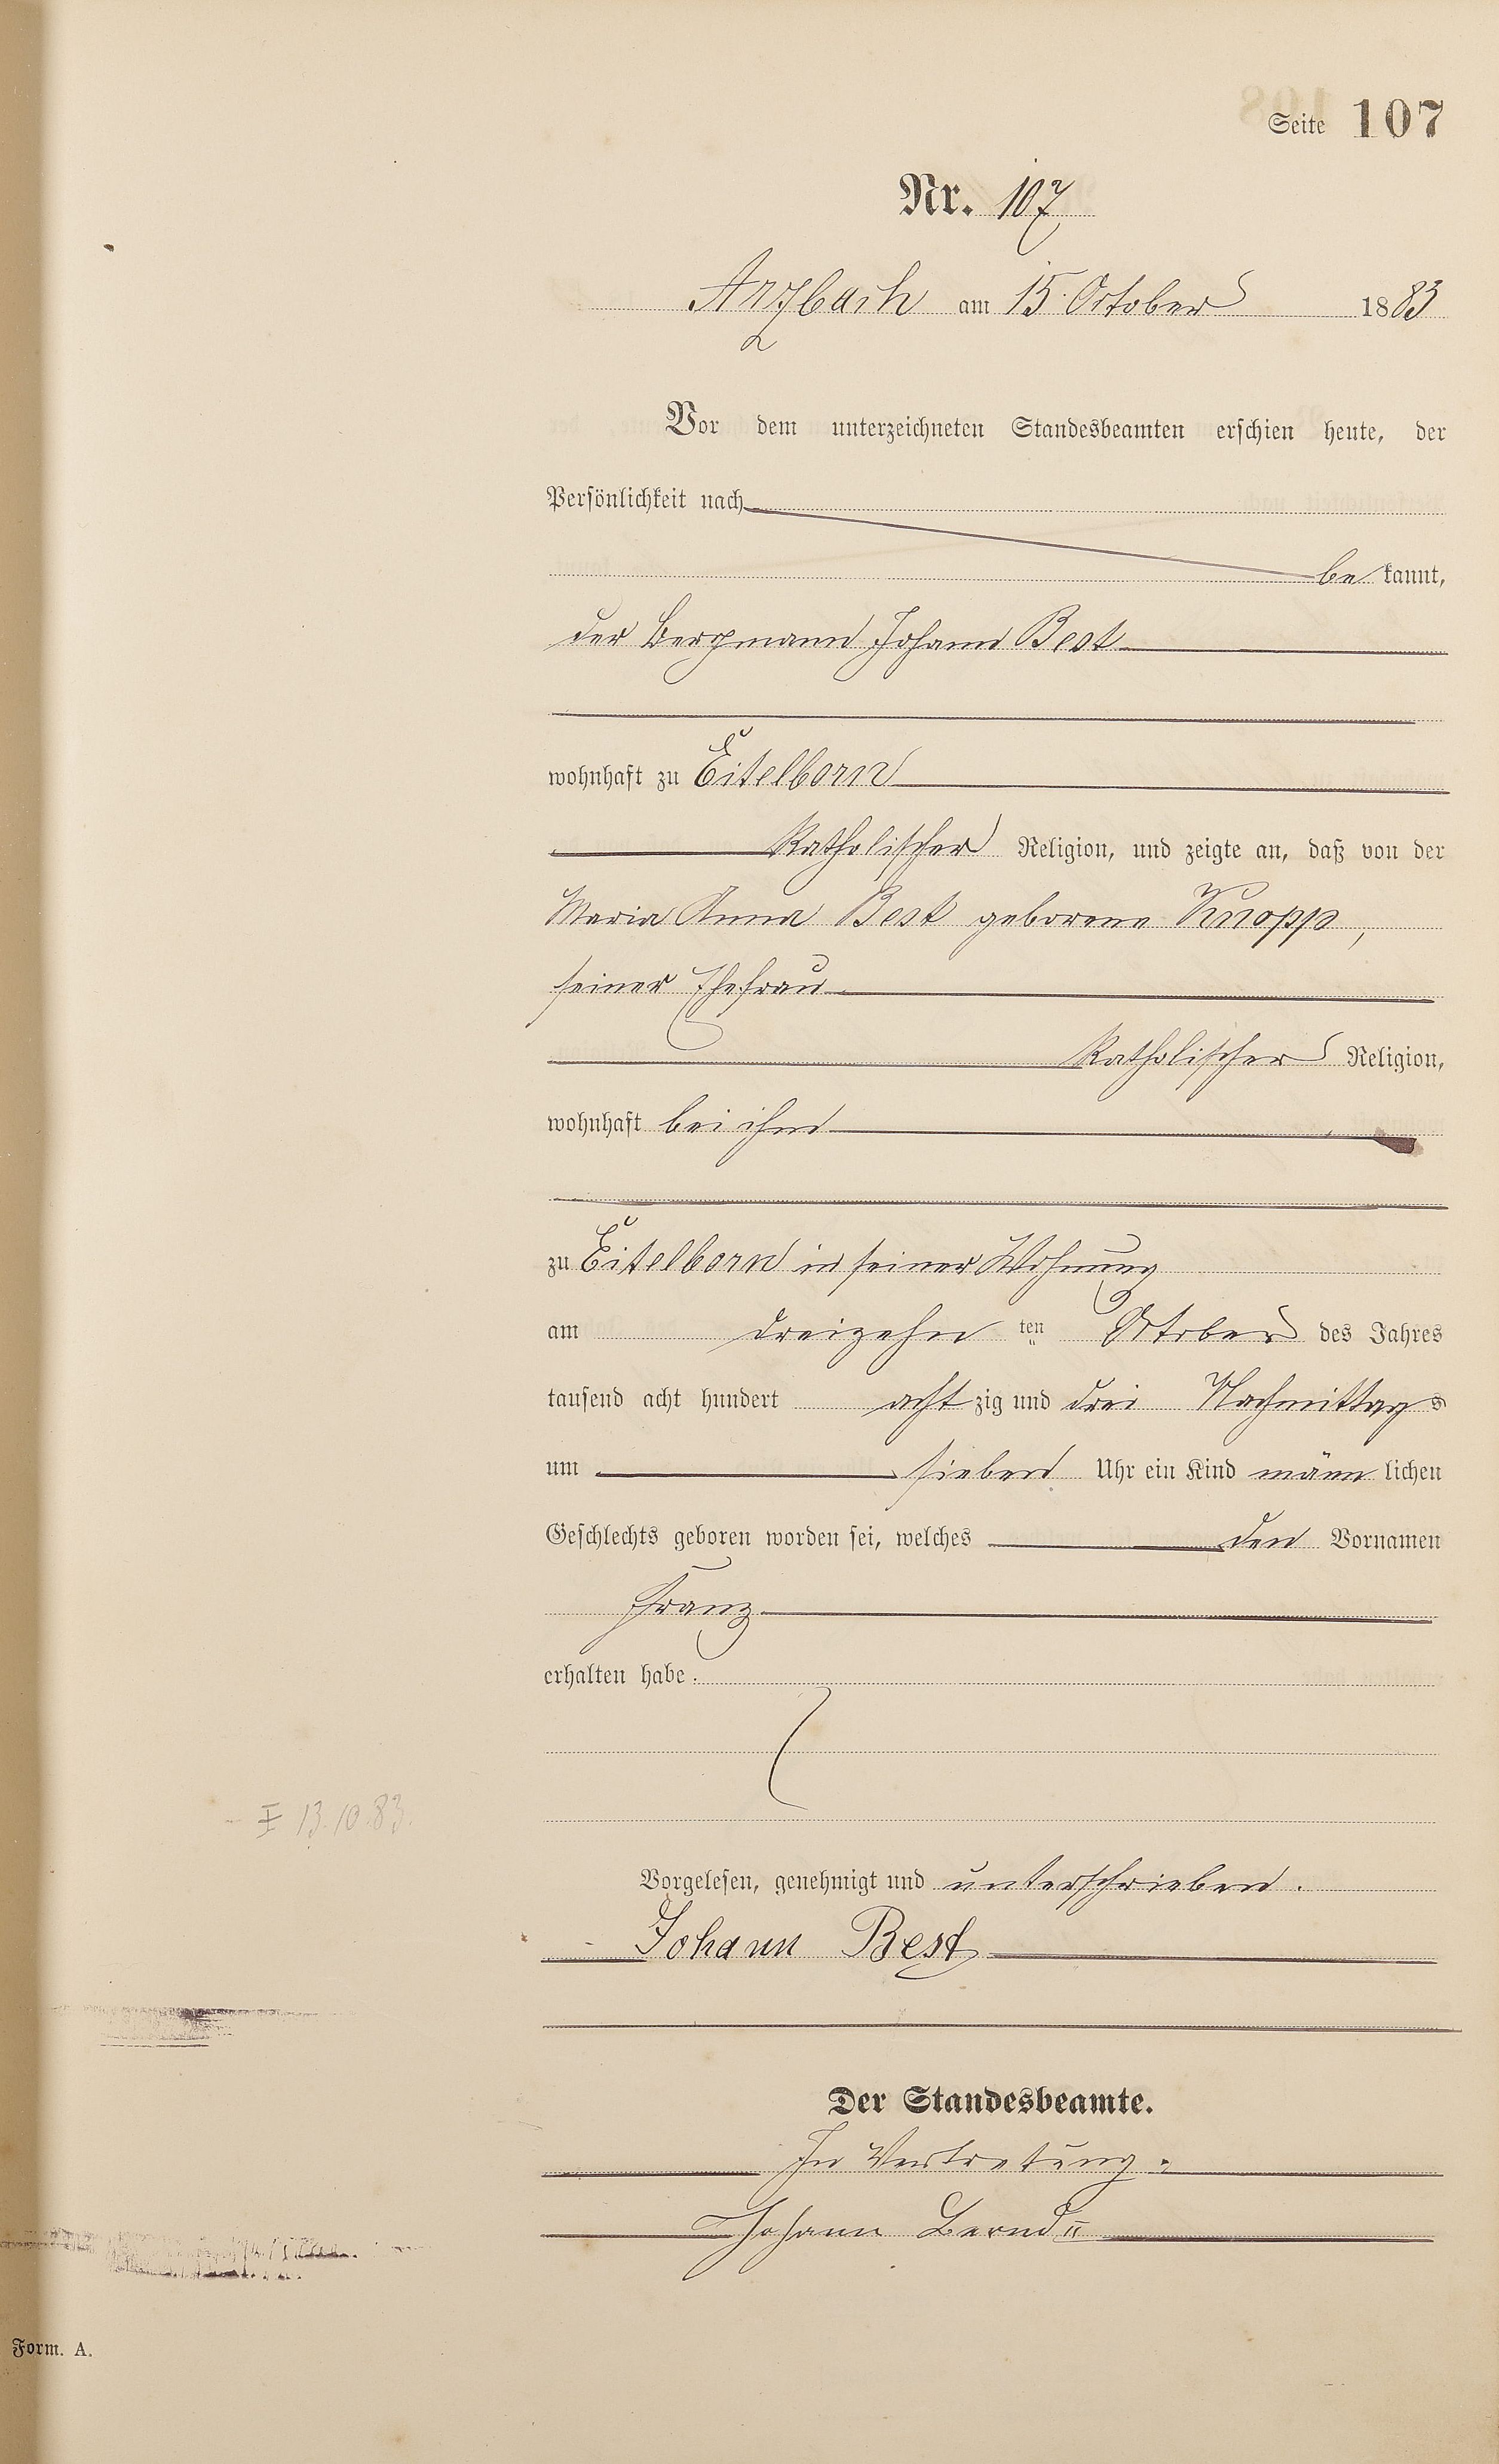 Seite 107
Nr. 107
Arzbach am 15. October 1883
Vor dem unterzeichneten Standesbeamten erschien heute, der
Persönlichkeit nach
be kannt,
der Bergmann Johann Best
wohnhaft zu Eitelborn
Katholischer Religion, und zeigte an, daß von der
Maria Anna Best geborene Knopp,
seiner Ehefrau
Katholischer Religion,
wohnhaft bei ihm
zu Eitelborn in seiner Wohnung
am dreizehn ten October des Jahres
tausend acht hundert acht zig und drei Nachmittags
um sieben Uhr ein Kind männ lichen
Geschlechts geboren worden sei, welches den Vornamen
Franz
erhalten habe.
13.10.83.
Vorgelesen, genehmigt und unterschrieben.
Johann Best
Der Standesbeamte.
In Vertretung:
Johann Bernd II
Form. A.